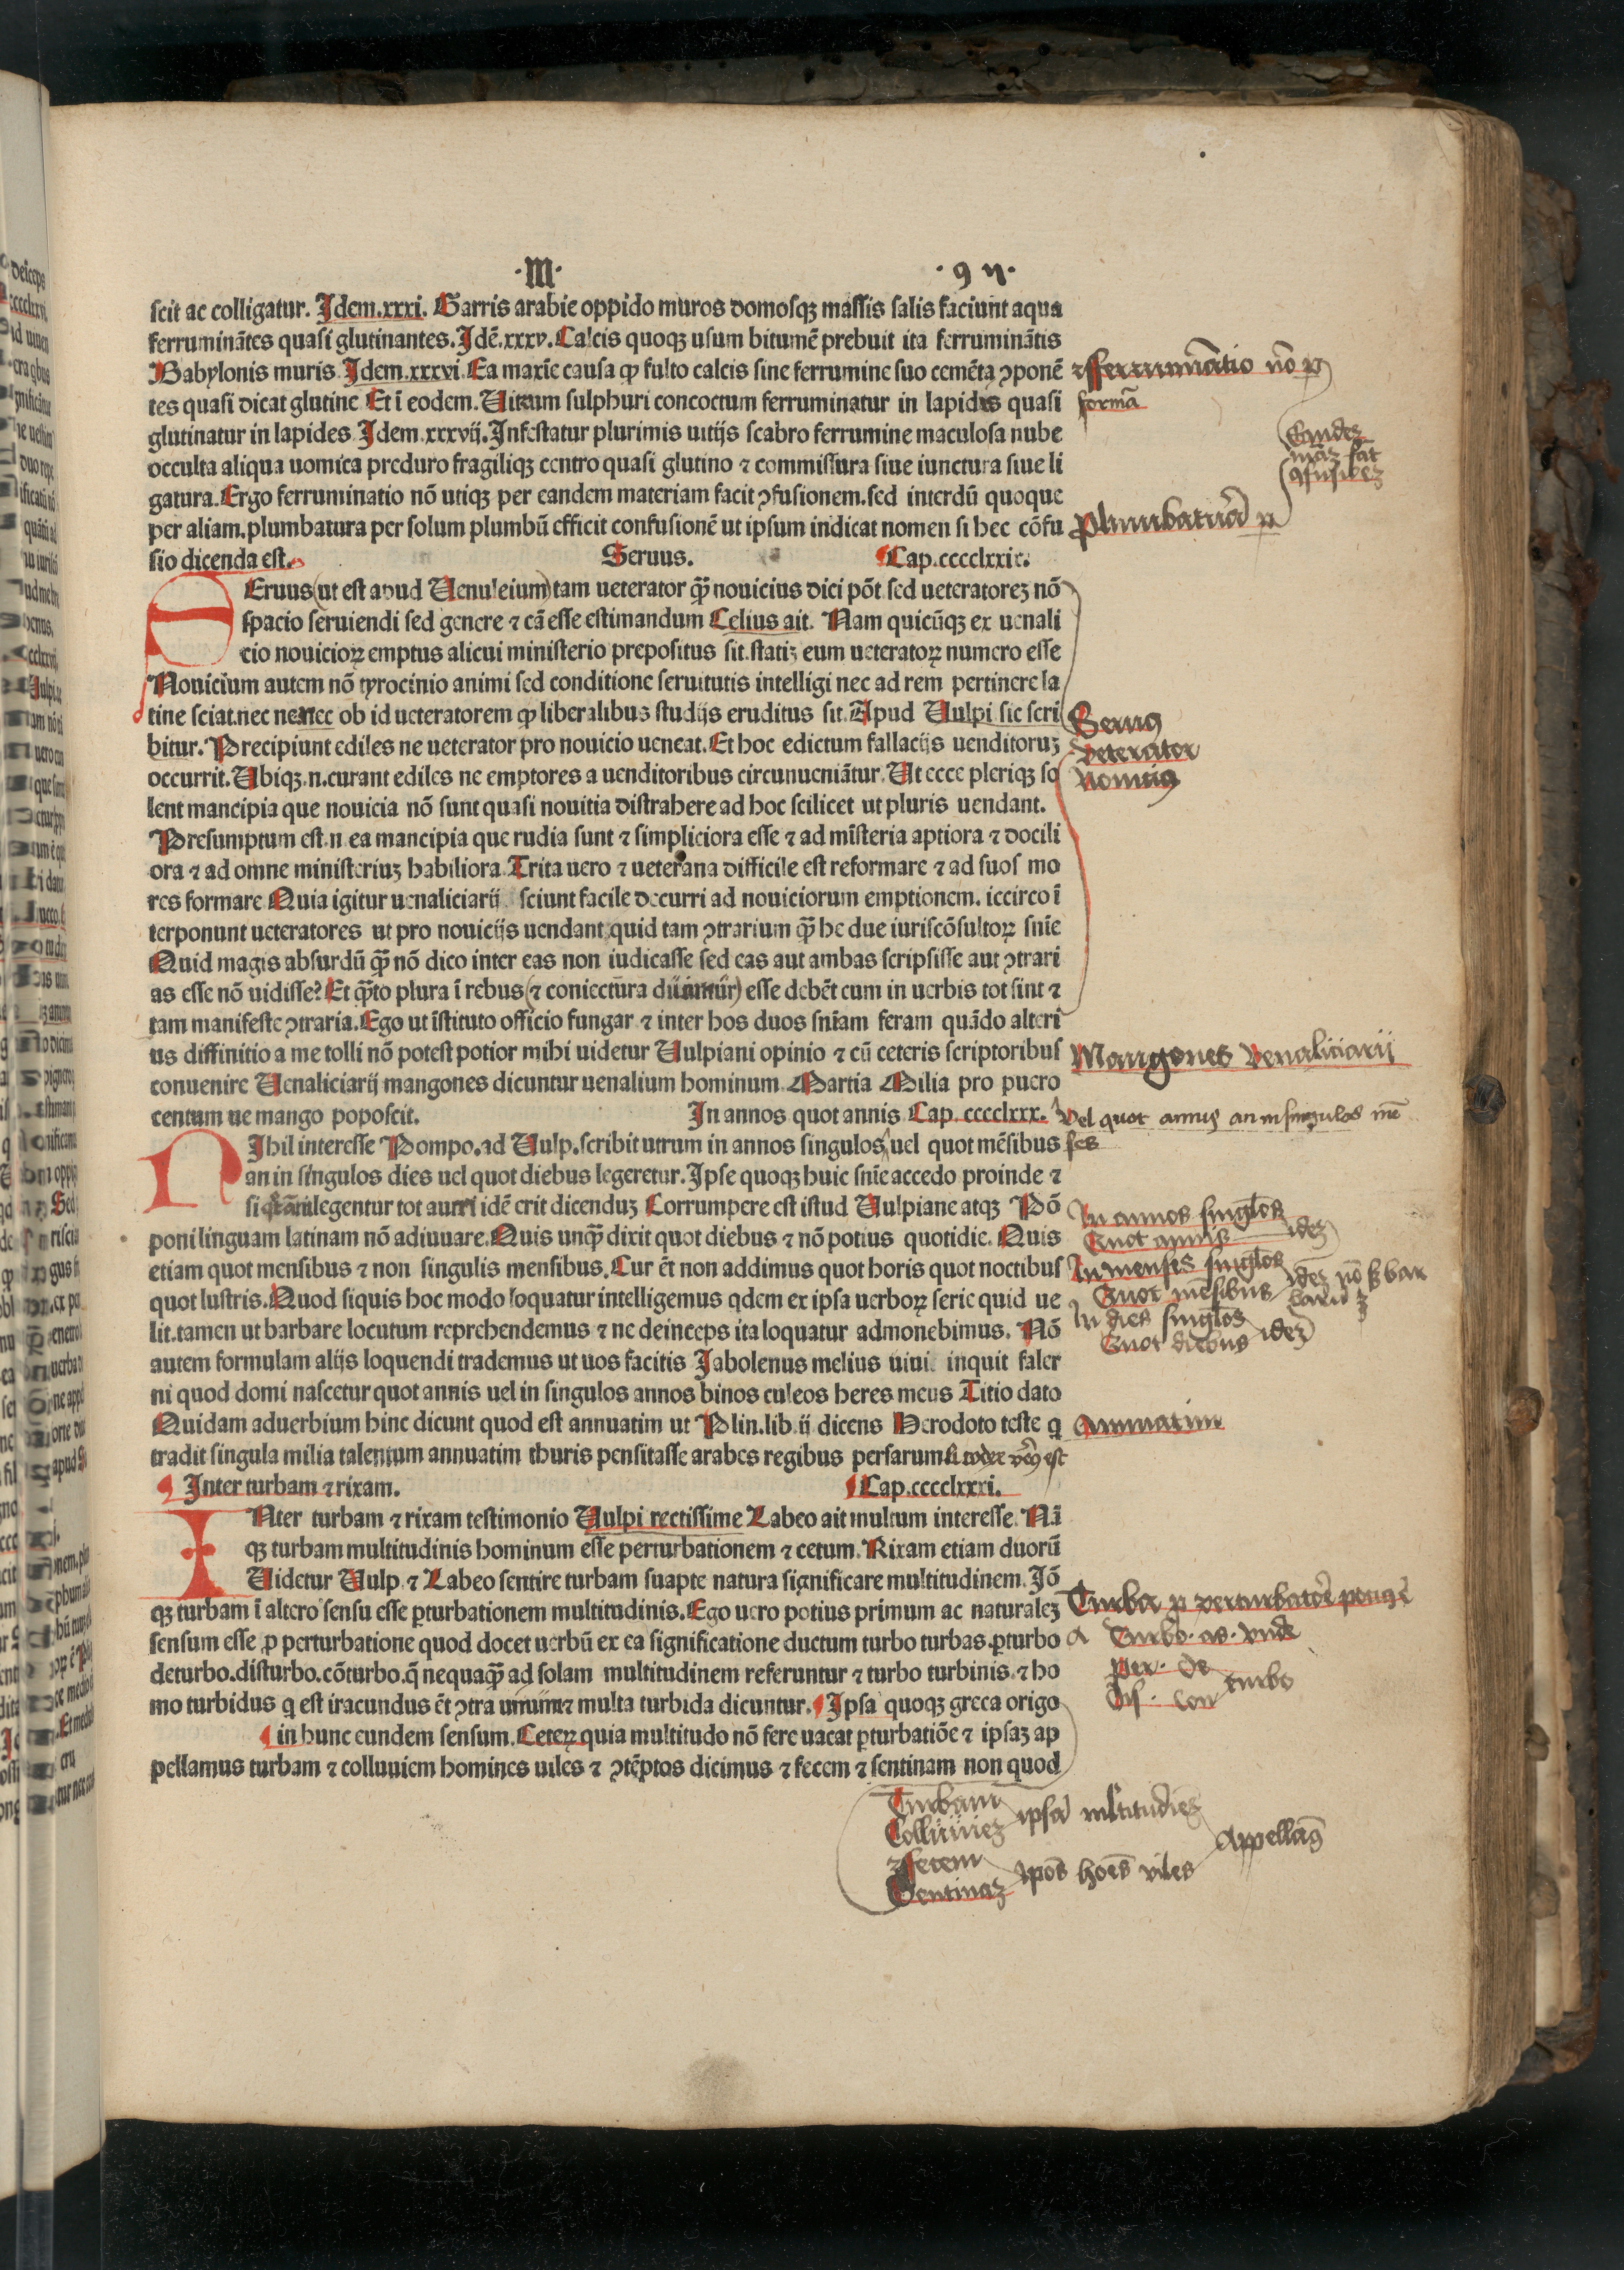 ·M· ·9 n·
scit ac colligatur. Idem.xxxi. Garris arabie oppido muros domosqꝫ massis salis faciunt aqua
ferruminātes quasi glutinantes. Idē.xxxv. Calcis quoqꝫ usum bitumē prebuit ita ferruminātis
Babylonis muris. Idem.xxxvi. Ea maxīe causa ꝙ fulto calcis sine ferrumine suo cemēta ꝯponē
tes quasi dicat glutine Et ī eodem. Uitrum sulphuri concoctum ferruminatur in lapides quasi
glutinatur in lapides Idem.xxxvij. Infestatur plurimis uitijs scabro ferrumine maculosa nube
occulta aliqua uomica preduro fragiliqꝫ centro quasi glutino ⁊ commissura siue iunctura siue li
gatura. Ergo ferruminatio nō utiqꝫ per eandem materiam facit ꝯfusionem. sed interdū quoque
per aliam. plumbatura per solum plumbū efficit confusionē ut ipsum indicat nomen si hec cōfu
sio dicenda est. Seruus. Cap.cccclxxix.
Eruus (ut est apud Uenuleium) tam ueterator q̄ꝫ nouicius dici pōt sed ueteratoreꝫ nō
spacio seruiendi sed genere ⁊ cā esse estimandum Celius ait. Nam quicūqꝫ ex uenali
cio nouicioꝝ emptus alicui ministerio prepositus sit. statiꝫ eum ueteratoꝝ numero esse
Nouicium autem nō tyrocinio animi sed conditione seruitutis intelligi nec ad rem pertinere la
tine sciat nec ne nec ob id ueteratorem ꝙ liberalibus studijs eruditus sit. Apud Uulpi sic scri
bitur. Precipiunt ediles ne ueterator pro nouicio ueneat. Et hoc edictum fallacijs uenditoruꝫ
occurrit. Ubiqꝫ.n. curant ediles ne emptores a uenditoribus circunueniātur. Ut ecce pleriqꝫ so
lent mancipia que nouicia nō sunt quasi nouitia distrahere ad hoc scilicet ut pluris uendant.
Presumptum est.n ea mancipia que rudia sunt ⁊ simpliciora esse ⁊ ad mīsteria aptiora ⁊ docili
ora ⁊ ad omne ministeriuꝫ habiliora. Trita uero ⁊ ueterana difficile est reformare ⁊ ad suos mo
res formare Quia igitur uenaliciarij sciunt facile decurri ad nouiciorum emptionem. iccirco ī
terponunt ueteratores ut pro nouicijs uendant quid tam ꝯtrarium q̄ꝫ he due iuriscōsultoꝝ snīe
Quid magis absurdū q̄ꝫ nō dico inter eas non iudicasse sed eas aut ambas scripsisse aut ꝯtrari
as esse nō uidisse? Et q̄ꝫto plura ī rebus (⁊ coniectura) esse debēt cum in uerbis tot sint ⁊
tam manifeste ꝯtraria. Ego ut īstituto officio fungar ⁊ inter hos duos snīam feram quādo alteri
us diffinitio a me tolli nō potest potior mihi uidetur Uulpiani opinio ⁊ cū ceteris scriptoribus
conuenire Uenaliciarij mangones dicuntur uenalium hominum. Martia Milia pro puero
centum ue mango poposcit. In annos quot annis Cap.cccclxxx.
Ihil interesse Pompo. ad Uulp. scribit utrum in annos singulos uel quot mēsibus
an in singulos dies uel quot diebus legeretur. Ipse quoqꝫ huic snīe accedo proinde ⁊
si legentur tot aurei idē erit dicenduꝫ Corrumpere est istud Uulpiane atqꝫ Pō
poni linguam latinam nō adiuuare. Quis unq̄ꝫ dixit quot diebus ⁊ nō potius quotidie. Quis
etiam quot mensibus ⁊ non singulis mensibus. Cur ēt non addimus quot horis quot noctibus
quot lustris. Quod siquis hoc modo loquatur intelligemus qdem ex ipsa uerboꝝ serie quid ue
lit. tamen ut barbare locutum reprehendemus ⁊ ne deinceps ita loquatur admonebimus. Nō
autem formulam alijs loquendi trademus ut uos facitis Iabolenus melius uini inquit faler
ni quod domi nascetur quot annis uel in singulos annos binos culeos heres meus Titio dato
Quidam aduerbium hinc dicunt quod est annuatim ut Plin.lib.ij dicens Herodoto teste q
tradit singula milia talentum annuatim thuris pensitasse arabes regibus persarum si codex verus est
Inter turbam ⁊ rixam. Cap.cccclxxxi.
Nter turbam ⁊ rixam testimonio Uulpi rectissime Labeo ait multum interesse. Nā
qꝫ turbam multitudinis hominum esse perturbationem ⁊ cetum. Rixam etiam duorū
Uidetur Uulp ⁊ Labeo sentire turbam suapte natura significare multitudinem. Iō
qꝫ turbam ī altero sensu esse ꝑturbationem multitudinis. Ego uero potius primum ac naturaleꝫ
sensum esse ꝓ perturbatione quod docet uerbū ex ea significatione ductum turbo turbas. ꝑturbo
deturbo. disturbo. cōturbo. q̄ nequaq̄ꝫ ad solam multitudinem referuntur ⁊ turbo turbinis. ⁊ ho
mo turbidus q est iracundus ēt ꝯtra unum ⁊ multa turbida dicuntur. Ipsa quoqꝫ greca origo
in hunc eundem sensum. Ceteꝝ quia multitudo nō fere uacat ꝑturbatiōe ⁊ ipsaꝫ ap
pellamus turbam ⁊ colluuiem homines uiles ⁊ ꝯtēptos dicimus ⁊ fecem ⁊ sentinam non quod
fferruminatio nō ꝑ
formā
Eandeꝫ
māꝫ fāt
ꝯfusioneꝫ
Plumbatura ꝑ
Seruus
veterator
Nouitius
Mangones venaliciarij
vel quot annis an in singulos mē
ses
In annos singlos
Quot annis ideꝫ
In menses singlos
Quot mēsibus ideꝫ nō ꝫ bar
barū ꝫ
In dies singlos
Quot diebus ideꝫ
Annuatim
Turba ꝓ perturbatōe
Turbo. as. vnde
Per. de
dis. con turbo
Turbam
Colluuieꝫ ipsā mltitudineꝫ
ffecem
Sentinaꝫ ipos hoēs viles
Appellam9